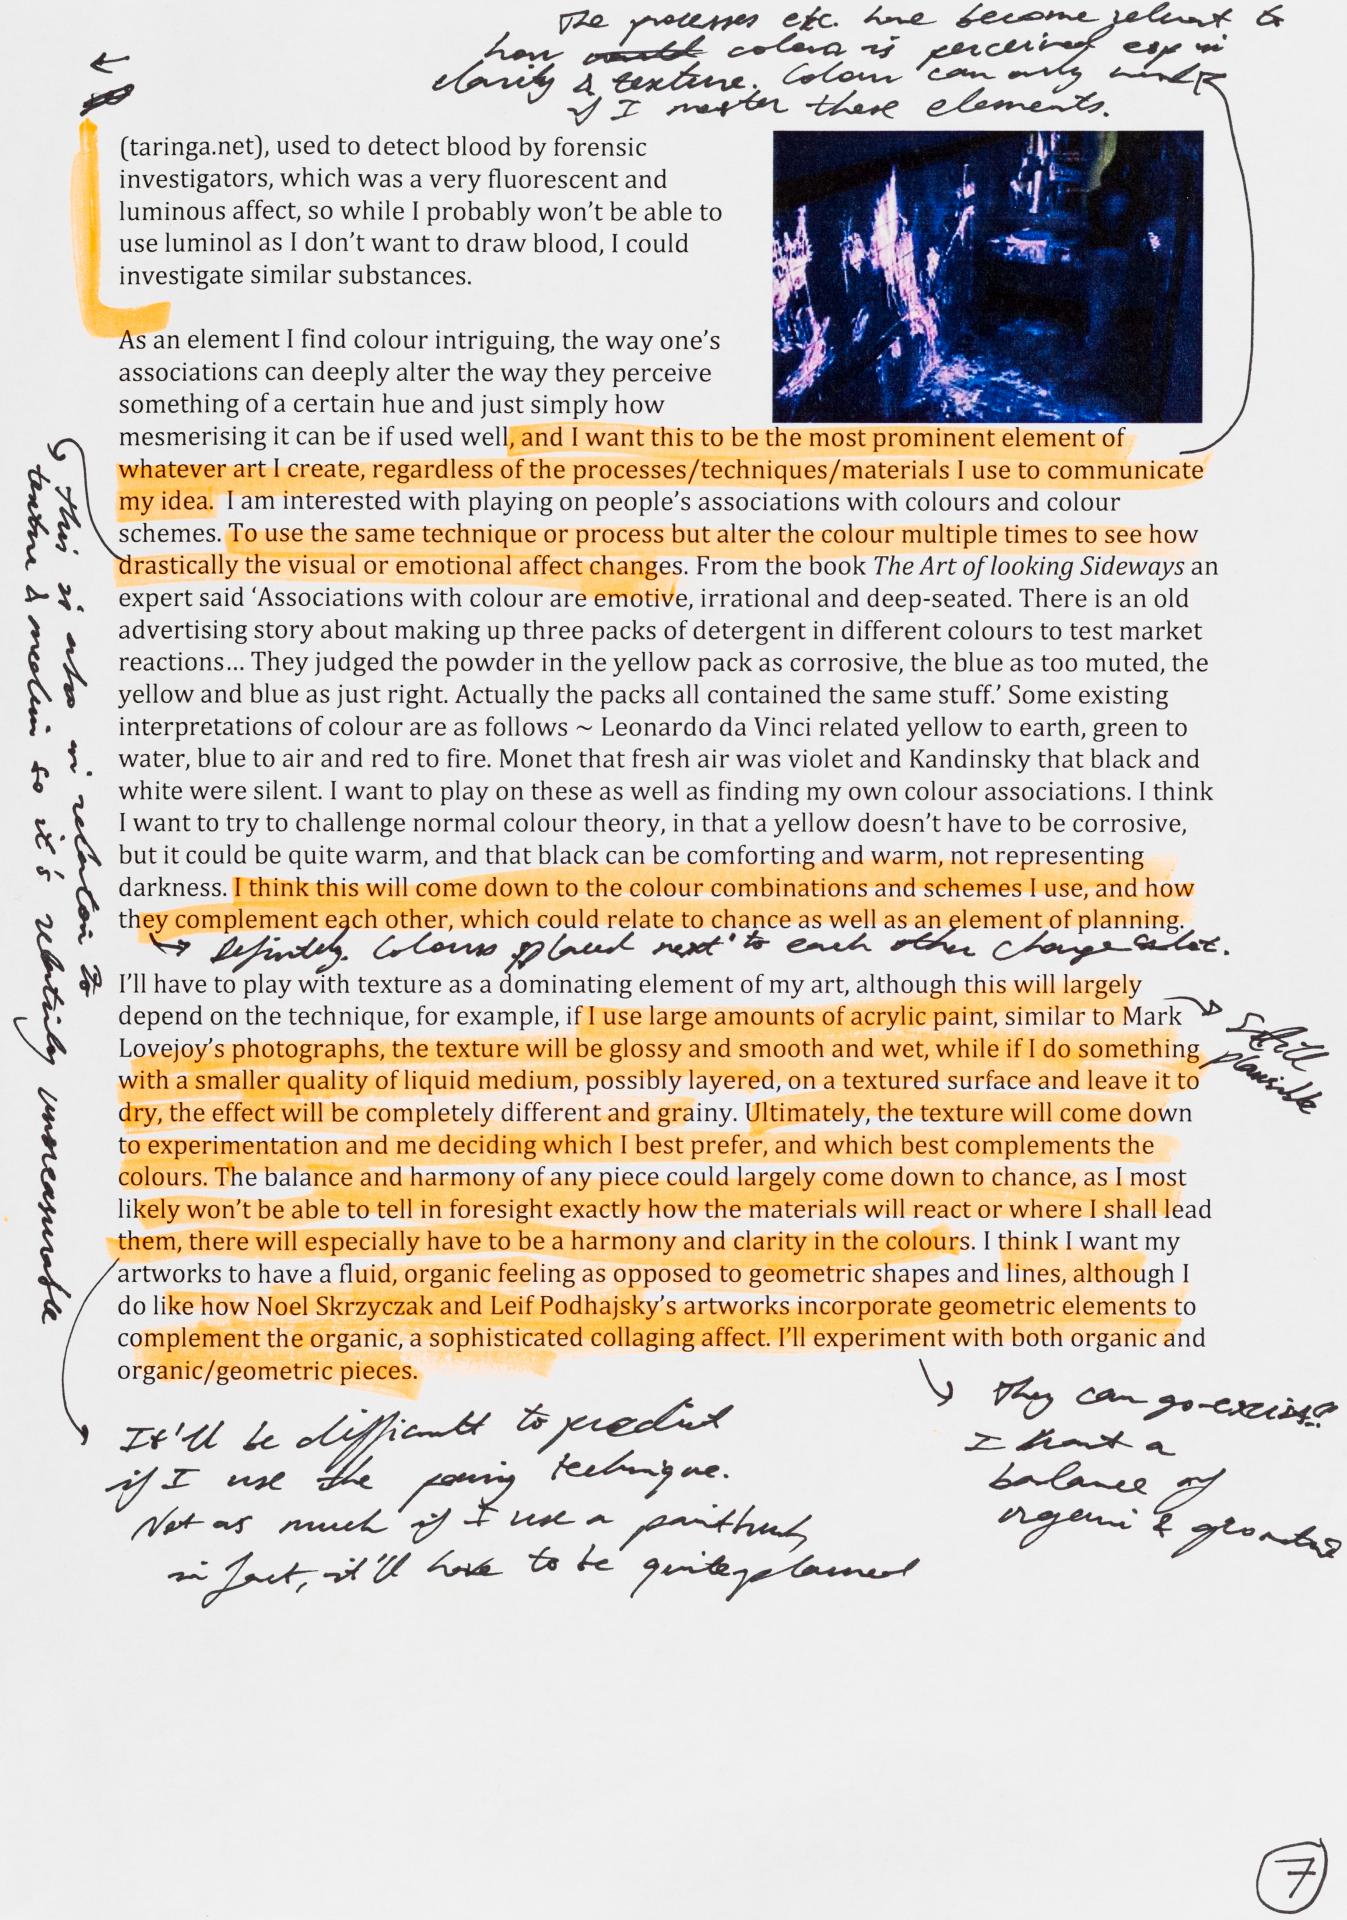 The processes etc. have become relevant to
how colour is perceived esp in
clarity & texture. Colour can only work
if I master these elements.
(taringa.net), used to detect blood by forensic
investigators, which was a very fluorescent and
luminous affect, so while I probably won’t be able to
use luminol as I don’t want to draw blood, I could
investigate similar substances.
As an element I find colour intriguing, the way one’s
associations can deeply alter the way they perceive
something of a certain hue and just simply how
mesmerising it can be if used well, and I want this to be the most prominent element of
whatever art I create, regardless of the processes/techniques/materials I use to communicate
my idea.  I am interested with playing on people’s associations with colours and colour
schemes. To use the same technique or process but alter the colour multiple times to see how
drastically the visual or emotional affect changes. From the book The Art of looking Sideways an
expert said ‘Associations with colour are emotive, irrational and deep-seated. There is an old
advertising story about making up three packs of detergent in different colours to test market
reactions… They judged the powder in the yellow pack as corrosive, the blue as too muted, the
yellow and blue as just right. Actually the packs all contained the same stuff.’ Some existing
interpretations of colour are as follows ~ Leonardo da Vinci related yellow to earth, green to
water, blue to air and red to fire. Monet that fresh air was violet and Kandinsky that black and
white were silent. I want to play on these as well as finding my own colour associations. I think
I want to try to challenge normal colour theory, in that a yellow doesn’t have to be corrosive,
but it could be quite warm, and that black can be comforting and warm, not representing
darkness. I think this will come down to the colour combinations and schemes I use, and how
they complement each other, which could relate to chance as well as an element of planning.
Definitely. Colours placed next to each other change a lot.
I’ll have to play with texture as a dominating element of my art, although this will largely
depend on the technique, for example, if I use large amounts of acrylic paint, similar to Mark
Lovejoy’s photographs, the texture will be glossy and smooth and wet, while if I do something
with a smaller quality of liquid medium, possibly layered, on a textured surface and leave it to
dry, the effect will be completely different and grainy. Ultimately, the texture will come down
to experimentation and me deciding which I best prefer, and which best complements the
colours. The balance and harmony of any piece could largely come down to chance, as I most
likely won’t be able to tell in foresight exactly how the materials will react or where I shall lead
them, there will especially have to be a harmony and clarity in the colours. I think I want my
artworks to have a fluid, organic feeling as opposed to geometric shapes and lines, although I
do like how Noel Skrzyczak and Leif Podhajsky’s artworks incorporate geometric elements to
complement the organic, a sophisticated collaging affect. I’ll experiment with both organic and
organic/geometric pieces.
this is also in relation to
texture & medium so it's relatively unmeasurable
still
plausible
It'll be difficult to predict
if I use the pouring technique.
Not as much if I use a paintbrush,
in fact, it'll have to be quite planned
They can co-exist?
I want a
balance of
organic & geometric
7